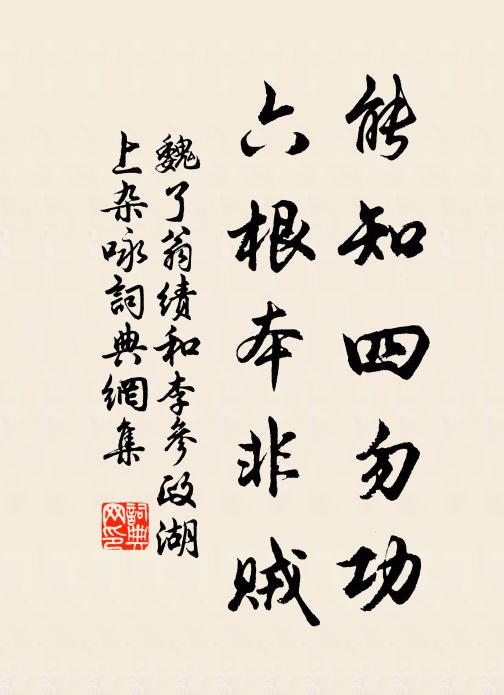 能知四勿功
六根本非贼
魏了翁績和李參政湖
上杂咏詞典網集
詞典
网印